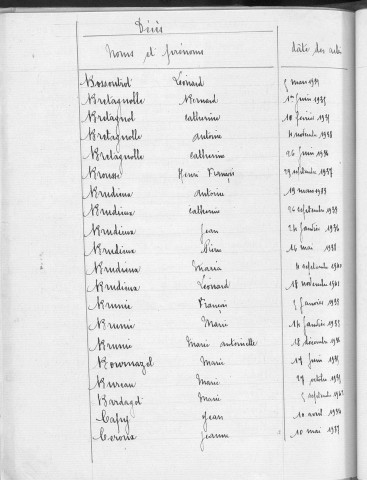 Décès
Noms et prénoms date des actes
Bossoutrot Léonard 5 mars 1939
Bretagnolle Bernard 1er juin 1935
Bretagnol Catherine 10 février 1937
Bretagnolle Antoine 4 novembre 1938
Bretagnolle Catherine 26 juin 1936
Brousse Henri François 29 septembre 1937
Brudieux Antoine 19 mars 1933
Brudieux Catherine 26 septembre 1939
Brudieux Jean 24 janvier 1936
Brudieux Pierre 14 mai 1938
Brudieux Maria 4 septembre 1940
Brudieux Léonard 18 novembre 1941
Brunie François 5 janvier 1938
Brunie Marie 14 janvier 1935
Brunie Marie Antoinette 12 décembre 1936
Bournazel Marie 17 juin 1935
Bureau Marie 27 octobre 1935
Bardagot Marie 5 septembre 1942
Capy Jean 10 avril 1934
Ceroux Jeanne 10 mai 1937